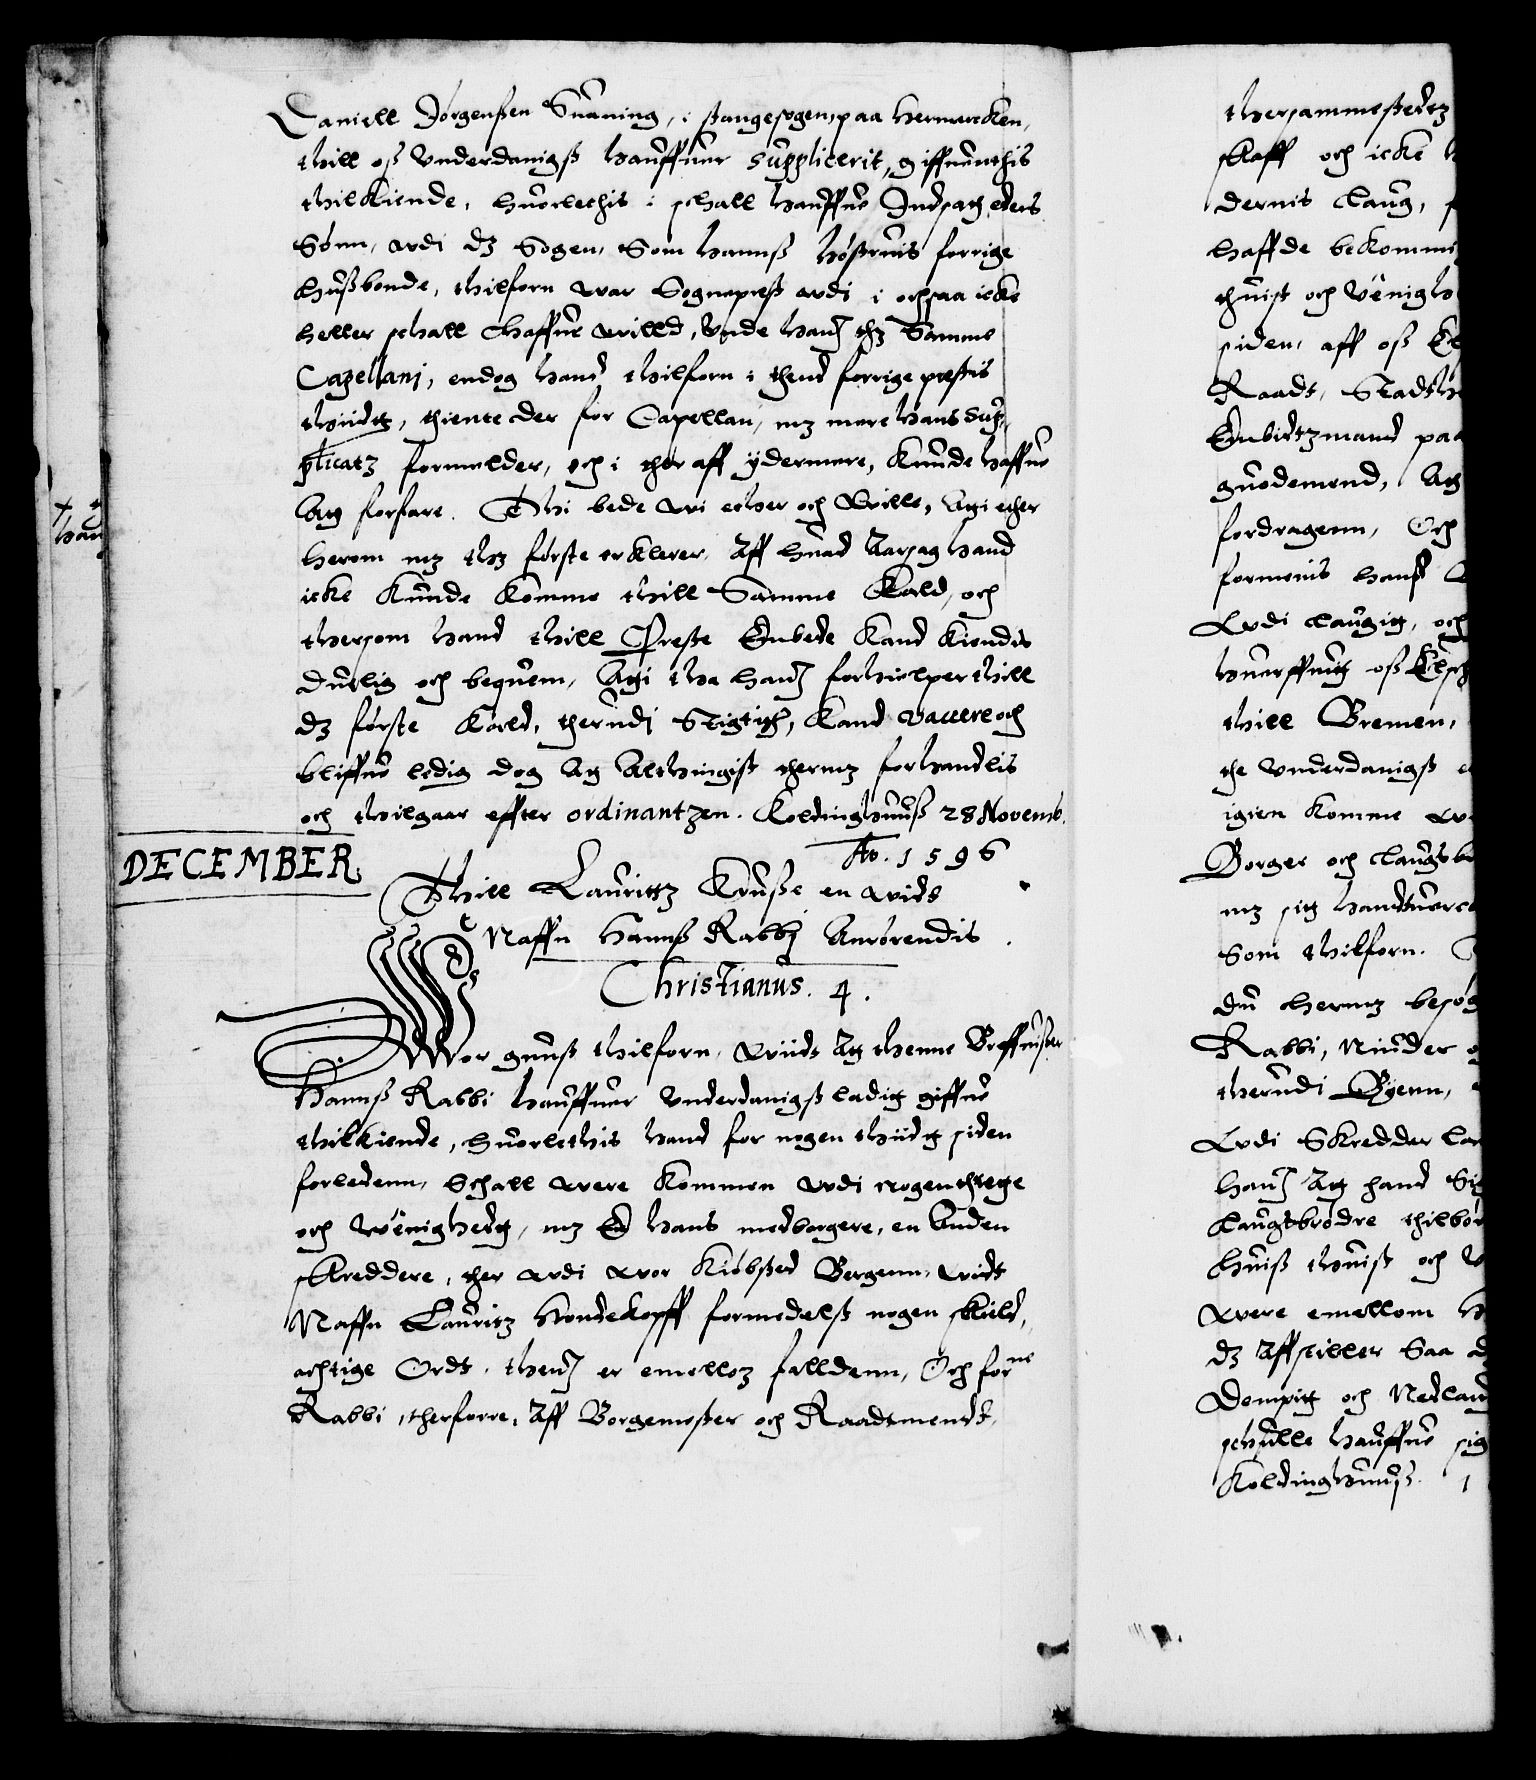 Daniell Jørgenßen Snaning, i stangesogen, paa Hemarcken,
thill oß Vnderdanigß hauffuer Supplicerit, giffuenthis
thilkiende, huorlethis i schall hauffue Indsatt eders
Sønn, vdi dz Sogen, Som hannß høstruis forrige
hußbonde, thilforn var Sogneprest vdi, i ochsaa icke
heller schall haffue villd, Vnde hann thz Samme
Capellanj, endog hand thilforn i thend forrige prestis
thiidt, thiente der for Capellan, mz mere hans Sup-
plicatz formelder, och i ther aff ydermere, kunde haffue
Att forfare. Thi bede vi ether och Ville, Atj ether
herom mz thz første erklerer, Aff huad Aarsag hand
icke kunde komme thill Samme Kald, och
thersom hand thill Preste Embede kand kiendis
duelig och bequem, Atj tha hann forhielper thill
dz første Kald, therudj Stigtith, kand vacere och
bliffue ledig dog At Althingist thermz forhandlis
och thilgaar effter ordinantzen. Koldinghuuß 28 Novemb.
Ao. 1596
DECEMBER
Thill Lauritz Kruße en vids
Naffn Hannß Rabbj Anrørendis
Christianus. 4.
Wor gunst thilforn, Wiidt At thenne Breffuißer
Hannß Rabbi hauffuer Vnderdanigß ladit giffue
thilkiende, huorlethis hand for nogen thiidt siden
forledenn, Schall vere kommen vdi nogen threge
och Wenighedt, mz En hans medborgere, en Anden
skreddere, ther vdi vor Kiøbsted Bergenn, vidt
Naffn Lauritz Hondekopff formedelß nogen skield,
achtige Ordt, thenn er emellom falldenn, Och forne
Rabbi, therforre, Aff Borgemester och Raadtmendt,
thersammestedtz
skaff och icke
dernis Laug,
haffde bekommi
thuist och Venigh
siden, aff oß
Raadt, Stadth
Embidtzmand paa
guodemend, At
fordragenn, Och
formenis hanß
Vdi Laugit, och
huerffuit oß
thill Bremen,
the Vnderdanigß
igien komme
Borger och Laugsb
mz sitt handtuerc
Som thilforn.
du hermz besøg
Rabbi, Niuder
therudi Byenn,
Vdi Skredder La
hann At hand Si
Laugsbrødre thilbør
huiß thuist och V
Vere emellom H
dz Affstiller Saa
Dempitt och Nedland
schulle hauffue sig
Koldinghuuß. 1